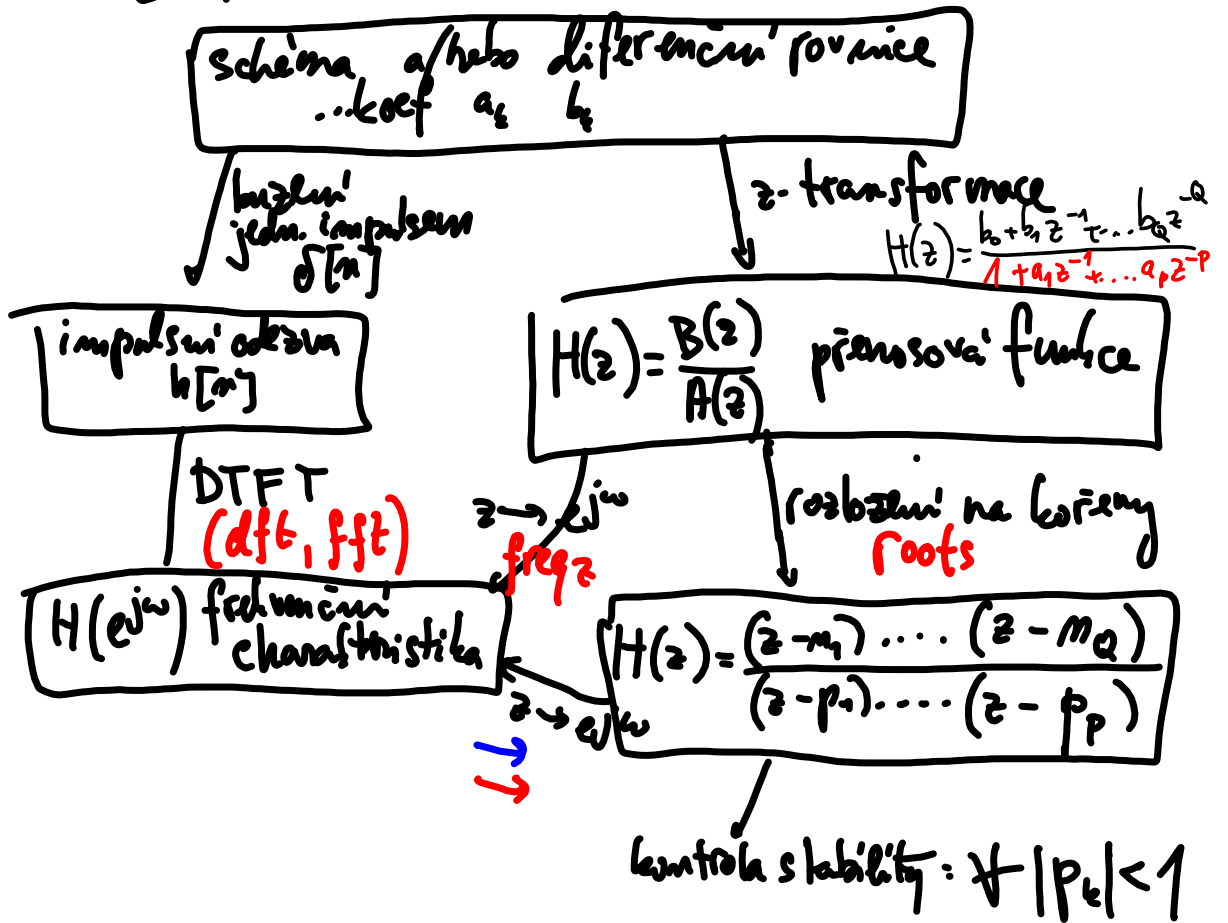 schéma a/nebo diferenční rovnice
...koef a_k b_k
buzení
jedn. impulsem
δ[n]
z-transformace
H(z) = (b₀ + b₁z⁻¹ + ... b_Q z^-Q) / (1 + a₁z⁻¹ + .... a_P z^-P)
impulsní odezva
h[n]
H(z) = B(z)/A(z) přenosová funkce
DTFT
(dft, fft)
z → e^jω
freqz
rozložení na kořeny
roots
H(e^jω) frekvenční
charakteristika
H(z) = (z - n₁) .... (z - n_Q) / (z - p₁) .... (z - p_P)
z → e^jω
kontrola stability: ∀ |p_k| < 1